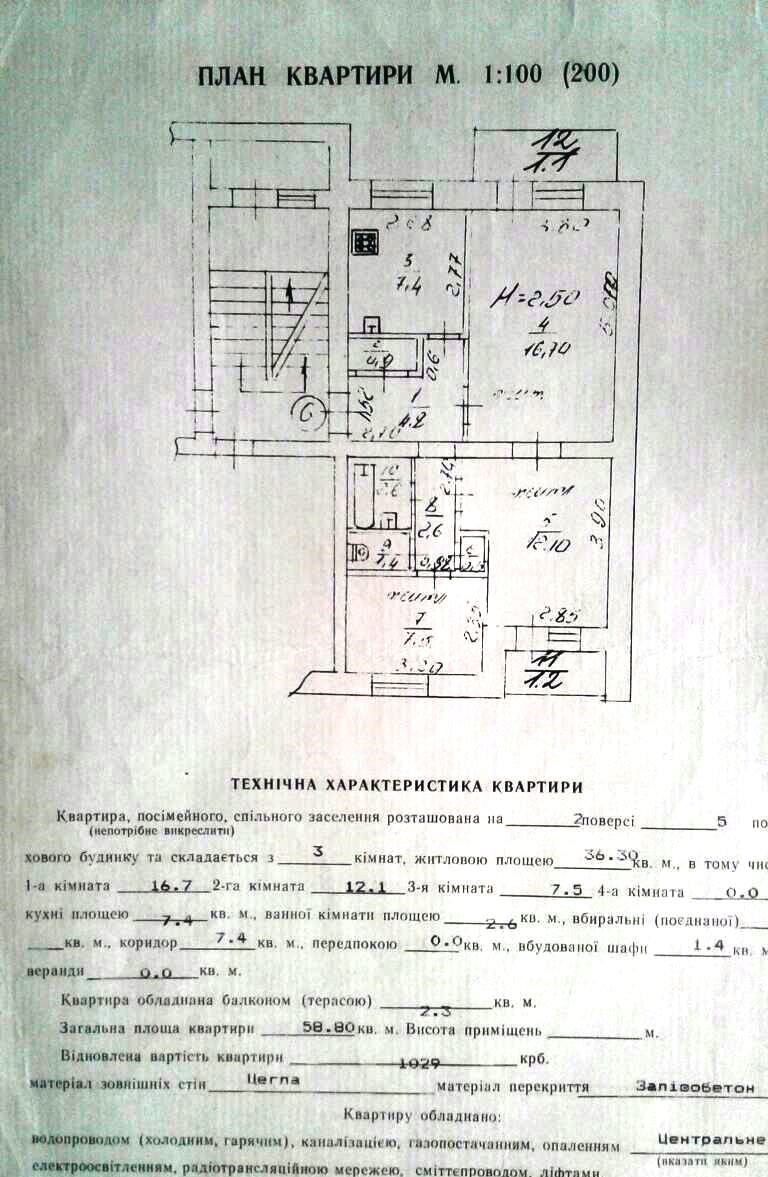 ПЛАН КВАРТИРИ М. 1:100 (200)
12
1.1
2.68
3
7,4
2,77
H=2,50
4
16,70
0,9
0,6
1
4.2
1,52
2,70
6
10
2.6
2.70
8
2.6
житл
5
12.10
3.90
9
1,4
0,92
житл
7
7,5
3.20
2.85
11
1.2
ТЕХНІЧНА ХАРАКТЕРИСТИКА КВАРТИРИ
Квартира, посімейного, спільного заселення розташована на 2 поверсі 5 по
(непотрібне викреслити)
хового будинку та складається з 3 кімнат, житловою площею 36.30 кв. м., в тому чис
1-а кімната 16.7 2-га кімната 12.1 3-я кімната 7.5 4-а кімната 0.0
кухні площею 7.4 кв. м., ванної кімнати площею 2.6 кв. м., вбиральні (поєднаної)
кв. м., коридор 7.4 кв. м., передпокою 0.0 кв. м., вбудованої шафи 1.4 кв. м
веранди 0.0 кв. м.
Квартира обладнана балконом (терасою) 2.3 кв. м.
Загальна площа квартири 58.80 кв. м. Висота приміщень м.
Відновлена вартість квартири 1029 крб.
матеріал зовнішніх стін Цегла матеріал перекриття Залізобетон
Квартиру обладнано:
водопроводом (холодним, гарячим), каналізацією, газопостачанням, опаленням Центральне
(вказати яким)
електроосвітленням, радіотрансляційною мережею, сміттєпроводом, ліфтами